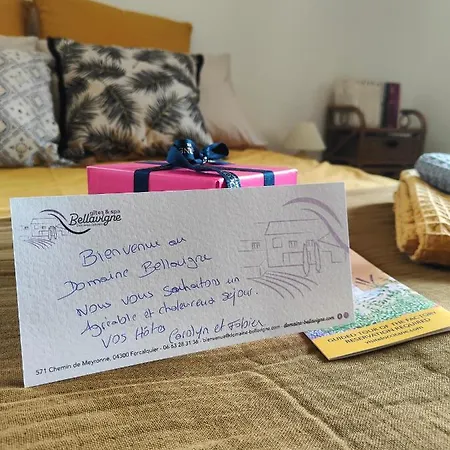 gîtes & spa
Bellavigne
Bienvenue au
Domaine Bellavigne
Nous vous souhaitons un
Agréable et chaleureux séjour.
Vos Hôtes Carolyn et Fabien
571 Chemin de Meyronne, 04300 Forcalquier - 06 63 28 31 56 - bienvenue@domaine-bellavigne.com - domaine-bellavigne.com
GUIDED TOUR OF THE FACTORY
RESERVATION REQUIRED